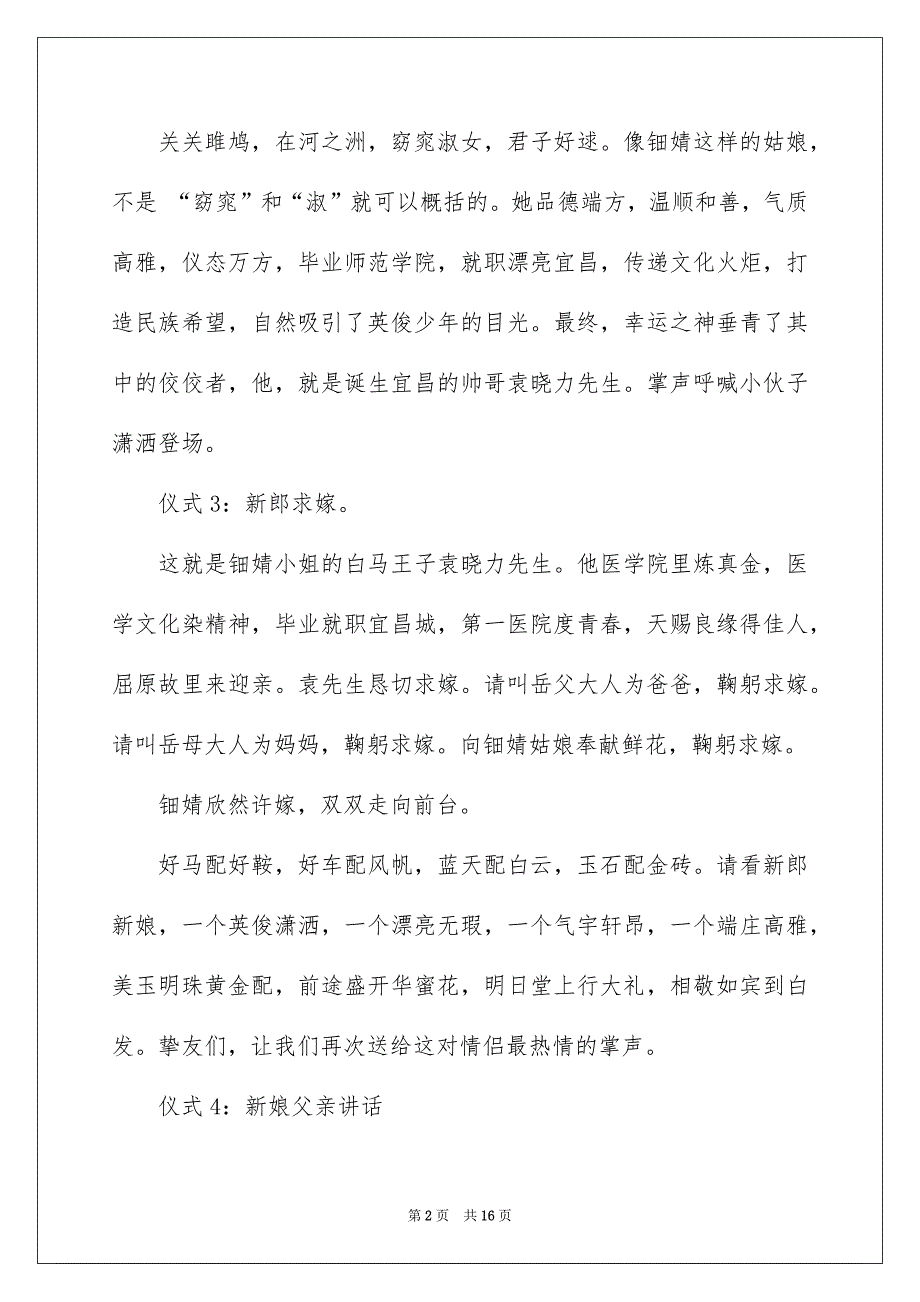 关关雎鸠，在河之洲，窈窕淑女，君子好逑。像钿婧这样的姑娘，
不是 “窈窕”和“淑”就可以概括的。她品德端方，温顺和善，气质
高雅，仪态万方，毕业师范学院，就职漂亮宜昌，传递文化火炬，打
造民族希望，自然吸引了英俊少年的目光。最终，幸运之神垂青了其
中的佼佼者，他，就是诞生宜昌的帅哥袁晓力先生。掌声呼喊小伙子
潇洒登场。
仪式 3：新郎求嫁。
这就是钿婧小姐的白马王子袁晓力先生。他医学院里炼真金，医
学文化染精神，毕业就职宜昌城，第一医院度青春，天赐良缘得佳人，
屈原故里来迎亲。袁先生恳切求嫁。请叫岳父大人为爸爸，鞠躬求嫁。
请叫岳母大人为妈妈，鞠躬求嫁。向钿婧姑娘奉献鲜花，鞠躬求嫁。
钿婧欣然许嫁，双双走向前台。
好马配好鞍，好车配风帆，蓝天配白云，玉石配金砖。请看新郎
新娘，一个英俊潇洒，一个漂亮无瑕，一个气宇轩昂，一个端庄高雅，
美玉明珠黄金配，前途盛开华蜜花，明日堂上行大礼，相敬如宾到白
发。挚友们，让我们再次送给这对情侣最热情的掌声。
仪式 4：新娘父亲讲话
第 2 页 共 16 页